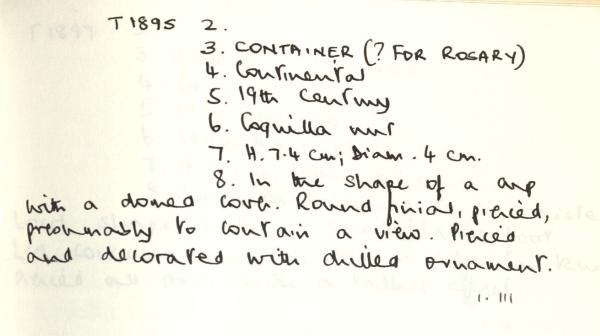 T1895 2.
3. CONTAINER (? FOR ROSARY)
4. Continental
5. 19th century
6. Coquilla nut
7. H. 7.4 cm; Diam. 4 cm.
8. In the shape of a cup
with a domed cover. Round finial, pierced,
presumably to contain a view. Pierced
and decorated with drilled ornament.
1. 111